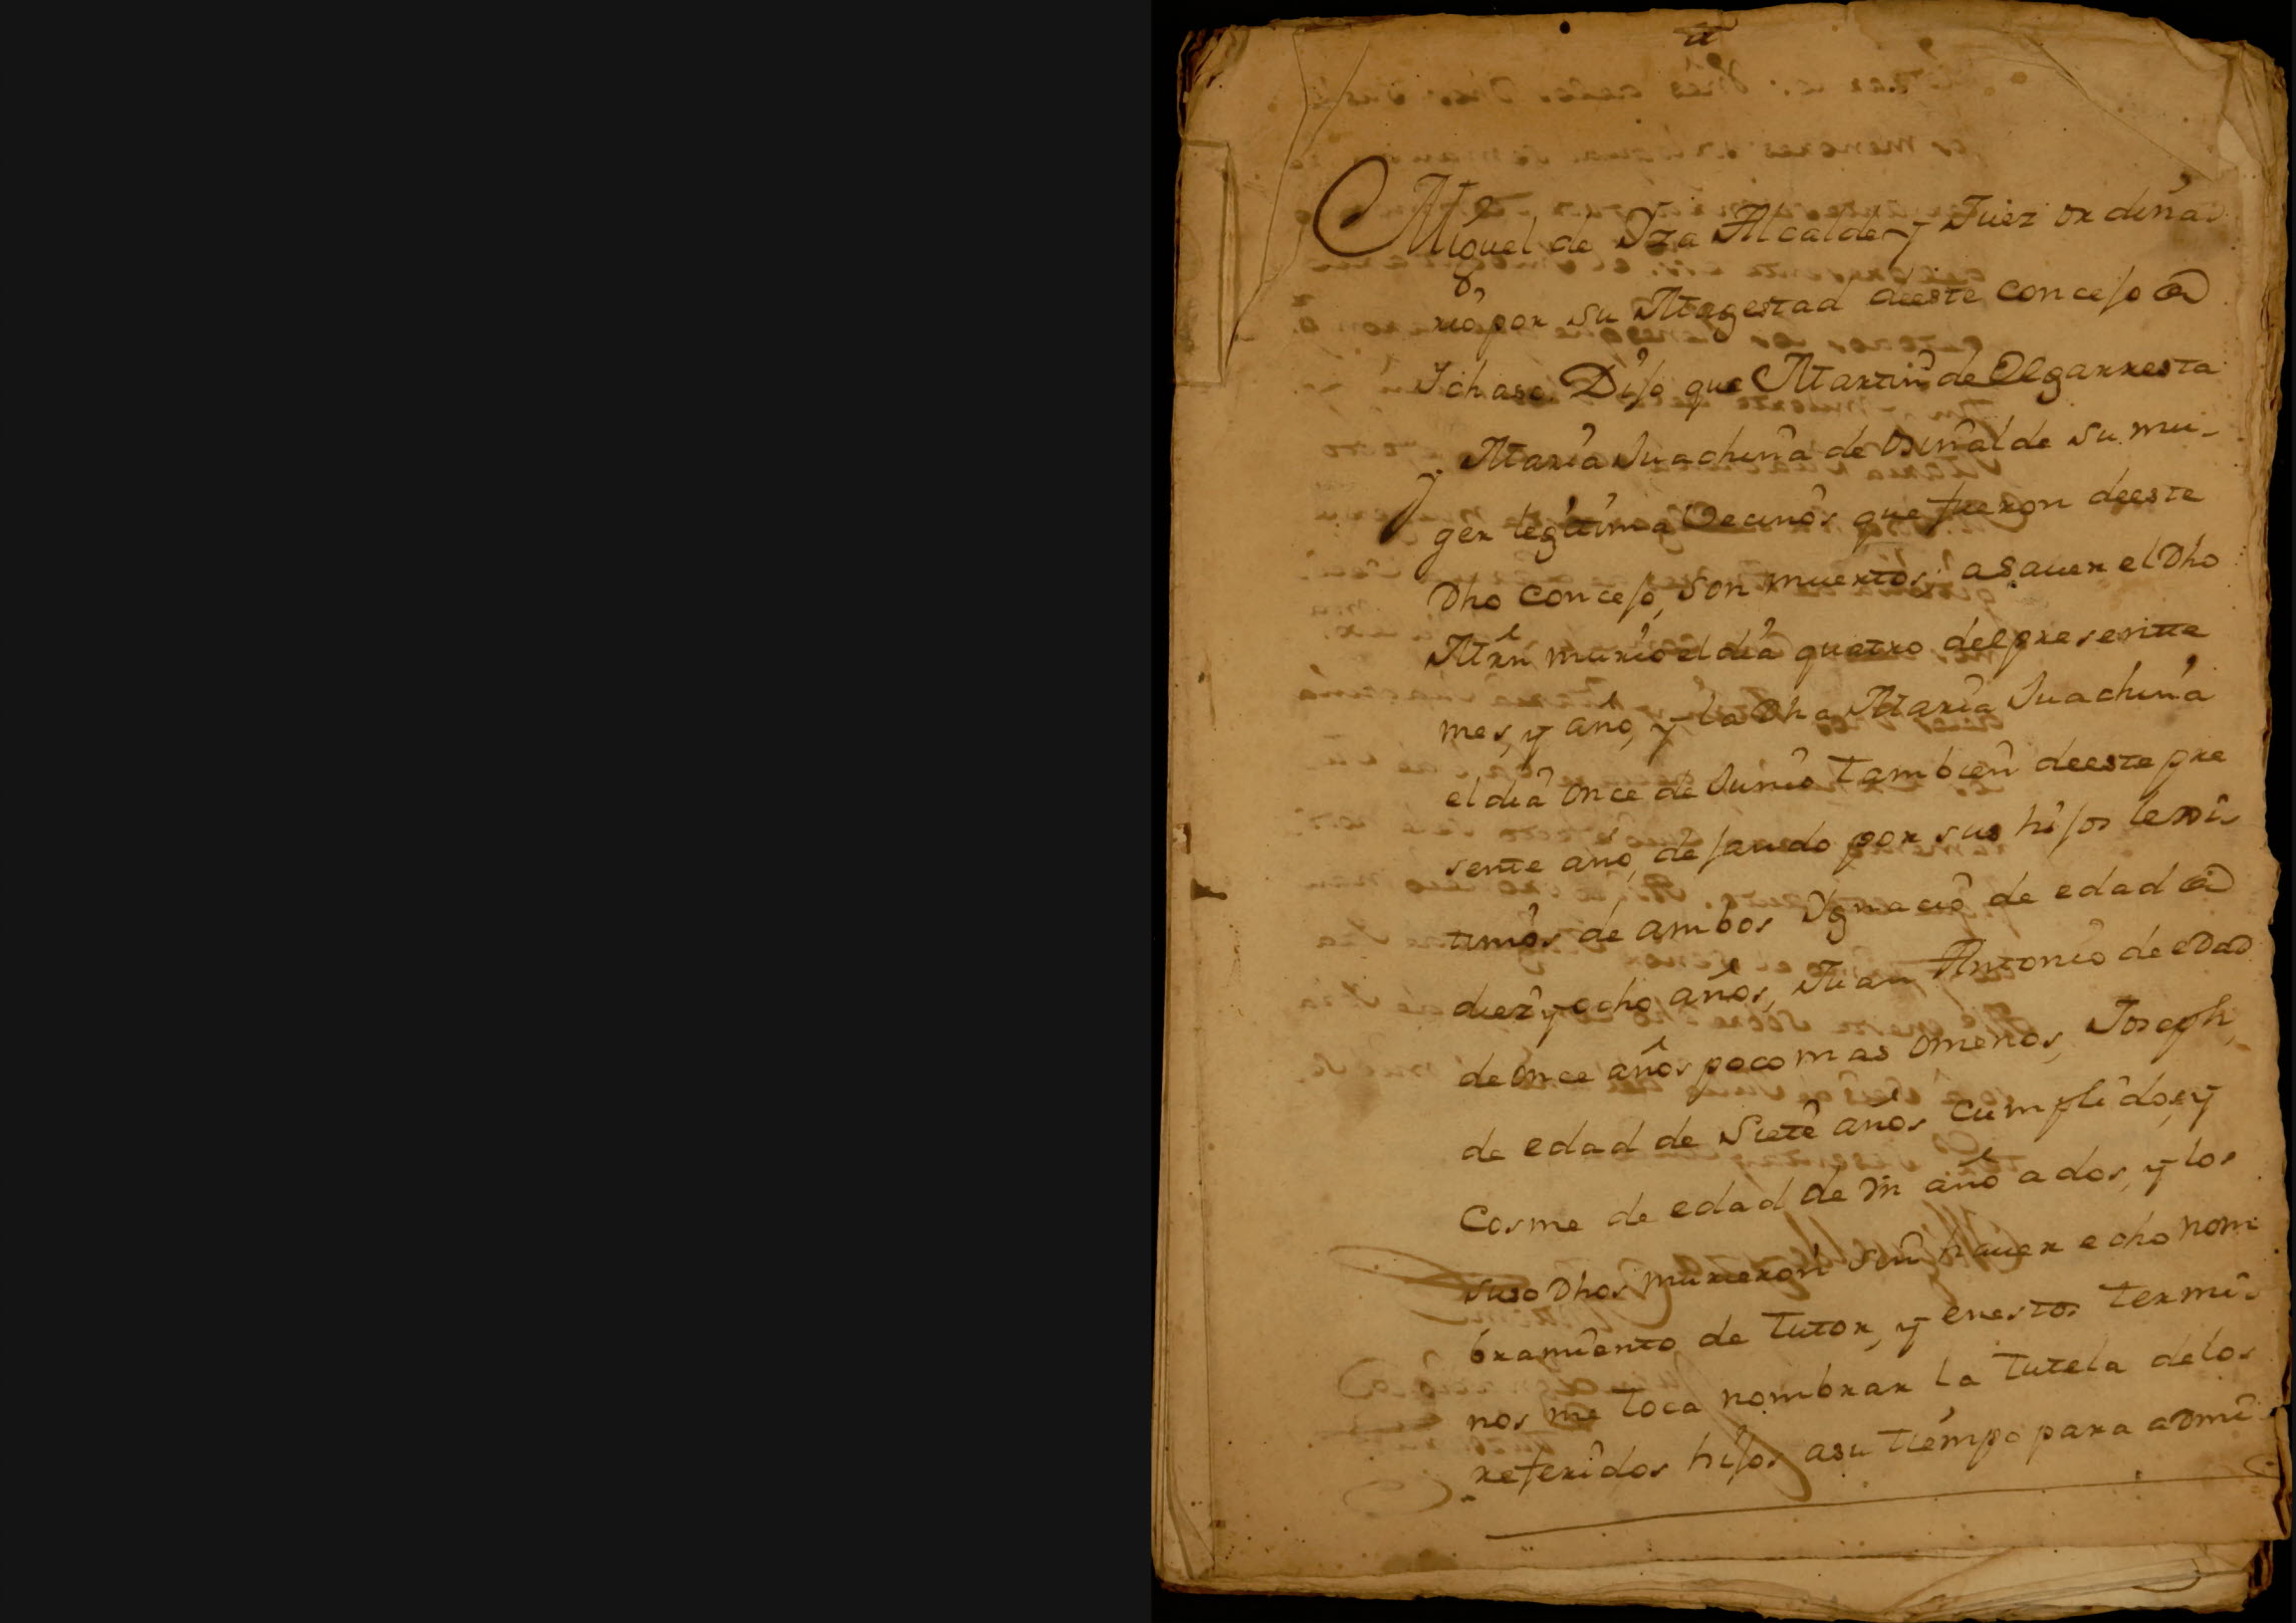 Miguel de Yza Alcalde y Juez ordina
rio por su Magestad deeste concejo de
Ichaso Dijo que Martin de Olgarresta
y Maria Juachina de Osinalde su mu-
ger legitima Vecinos que fueron deeste
Dho concejo, son muertos: asauer el Dho
Mrn murio el dia quatro del presentte
mes, y año, y la Dha Maria Juachina
el dia once de Junio tambien deeste pre
sente año, dejando por sus hijos lexi
timos de ambos Ygnacio de edad de
diez y ocho años, Juan Antonio de edad
de once años poco mas omenos, Joseph
de edad de Siete años cumplidos, y
Cosme de edad de vn año a dos, y los
suso Dhos murieron sin hauer echo nom
bramiento de tutor, y enestos termi
nos me toca nombrar la tutela delos
referidos hijos asu tiempo para admi